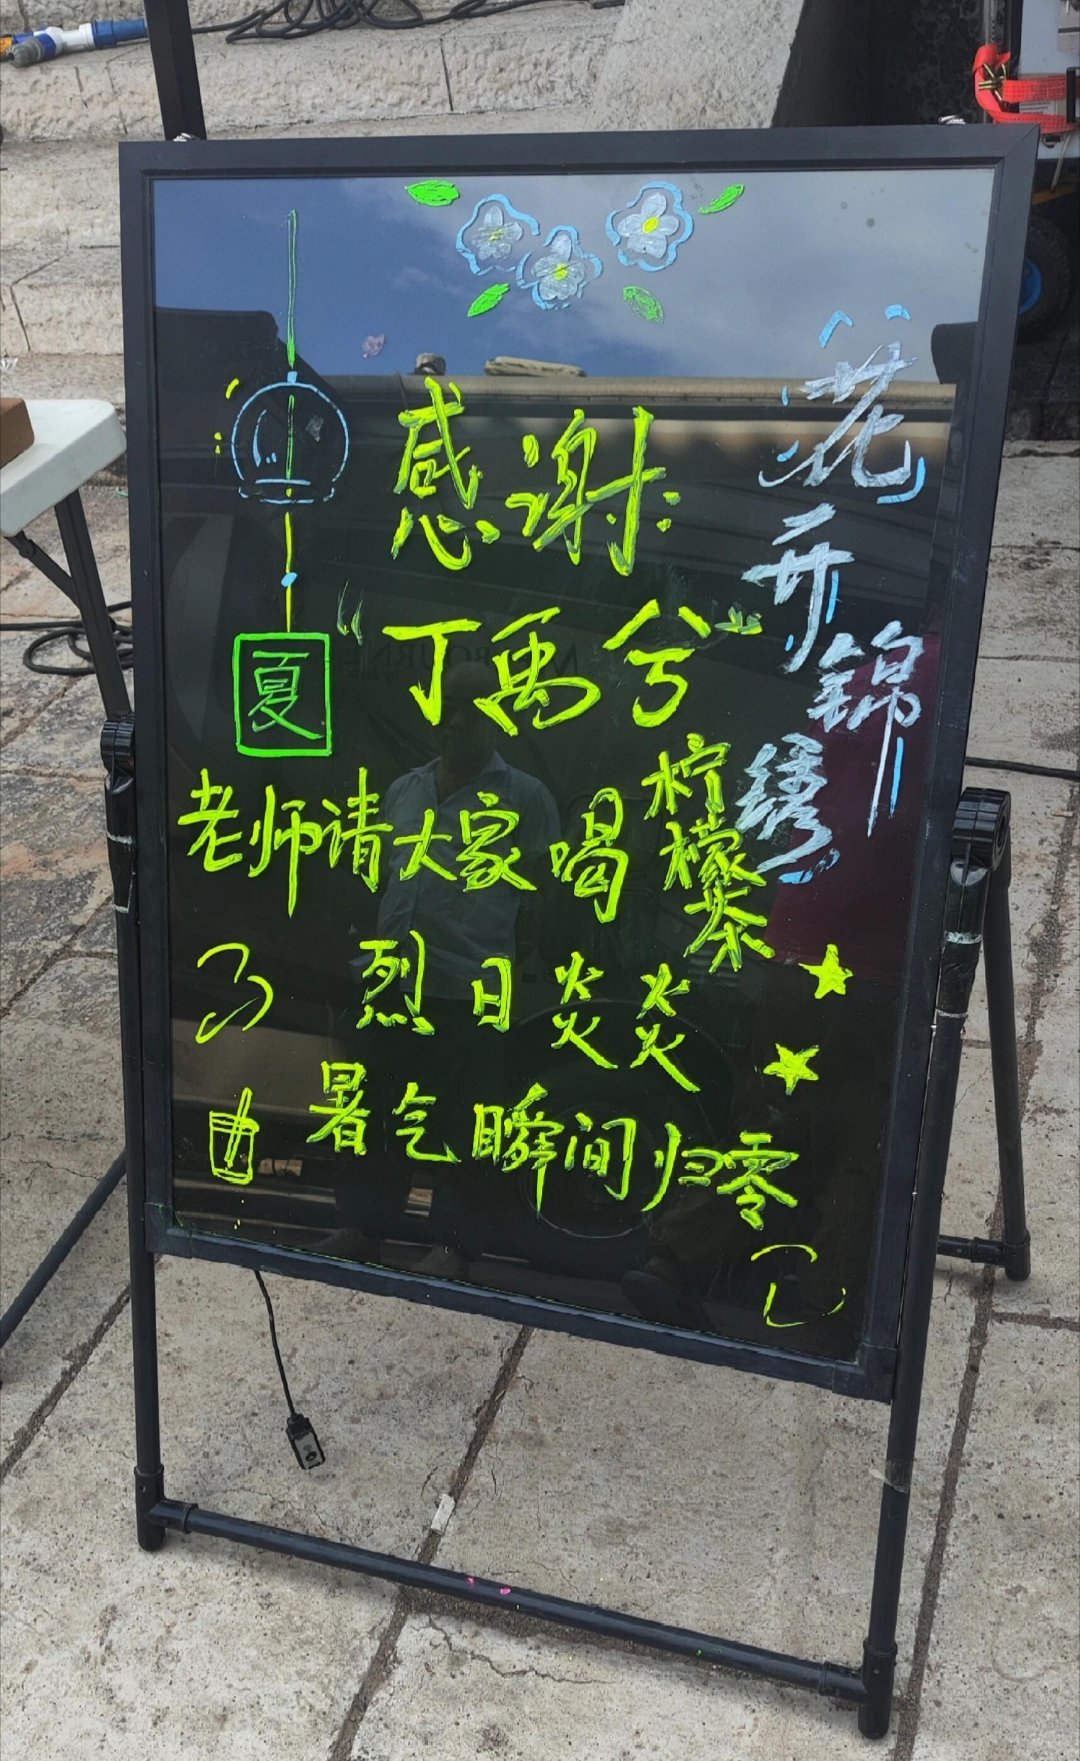 花开锦绣
感谢
“丁禹兮”
夏
老师请大家喝柠檬茶
烈日炎炎
暑气瞬间归零